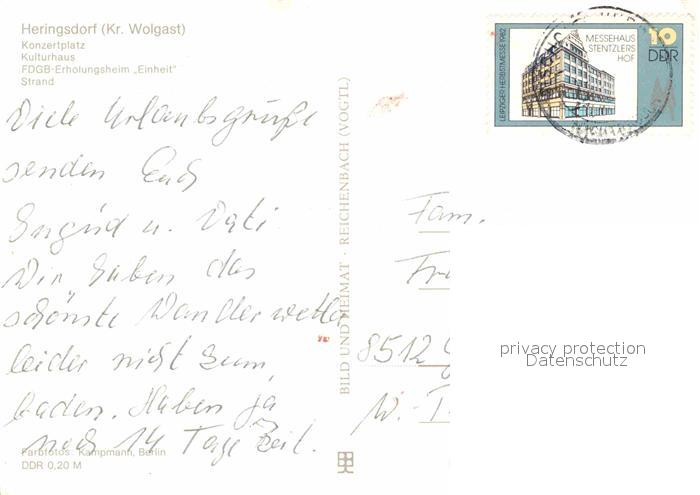 Heringsdorf (Kr. Wolgast)
Konzertplatz
Kulturhaus
FDGB-Erholungsheim „Einheit"
Strand
Viele Urlaubsgrüße
senden Euch
Ingrid u. Vati
Wir haben das
schönste Wanderwetter
leider nicht zum
baden. Haben ja
noch 14 Tage Zeit.
Farbfotos: Kampmann, Berlin
DDR 0,20 M
BILD UND HEIMAT · REICHENBACH (VOGTL)
LEIPZIGER HERBSTMESSE 1982
MESSEHAUS
STENTZLERS
HOF
10
DDR
Fam.
8512
W.-
privacy protection
Datenschutz